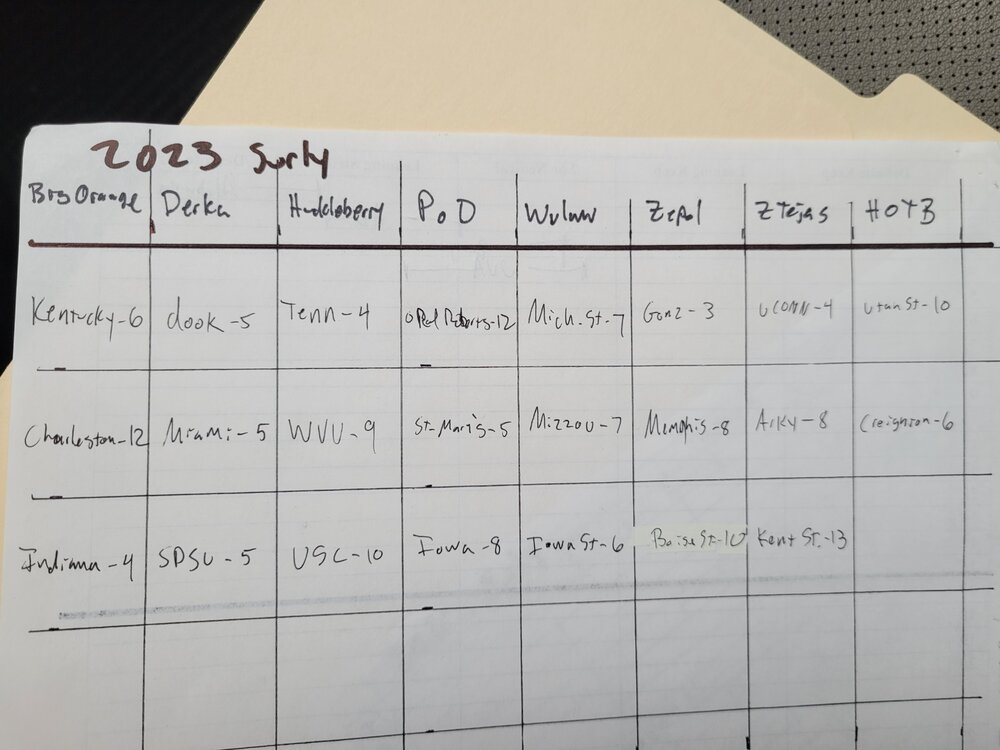 2023 Surly
Big Orange Derka Huckleberry PoD Wvluvv Zepol ZTejas HOTB
Kentucky-6 dook-5 Tenn-4 oRal Roberts-12 Mich. St-7 Gonz-3 UCONN-4 Utah St-10
Charleston-12 Miami-5 WVU-9 St. Maris-5 Mizzou-7 Memphis-8 Arky-8 Creighton-6
Indiana-4 SDSU-5 USC-10 Iowa-8 Iowa St-6 Boise St-10 Kent St.-13